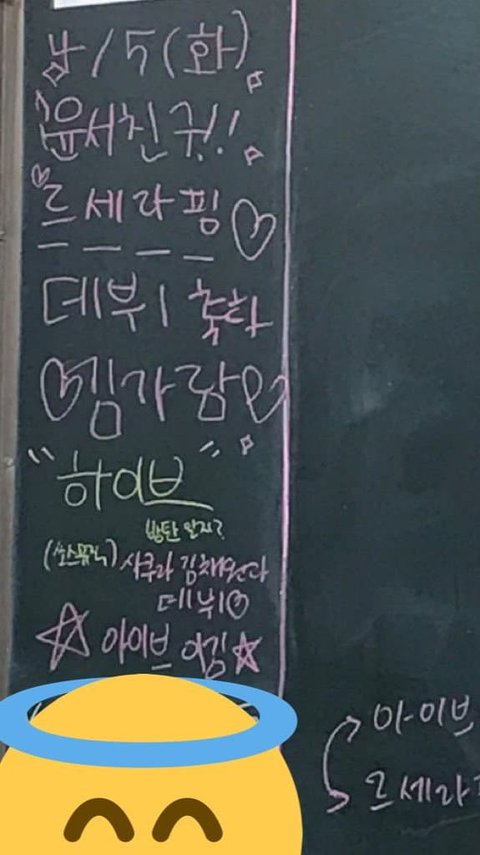 4/5(화)
윤서친구!!
르세라핌
데뷔 축하
김가람
"하이브"
방탄 알지?
(쏘스뮤직) 사쿠라 김채원다
데뷔
아이브 이김
아이브
르세라